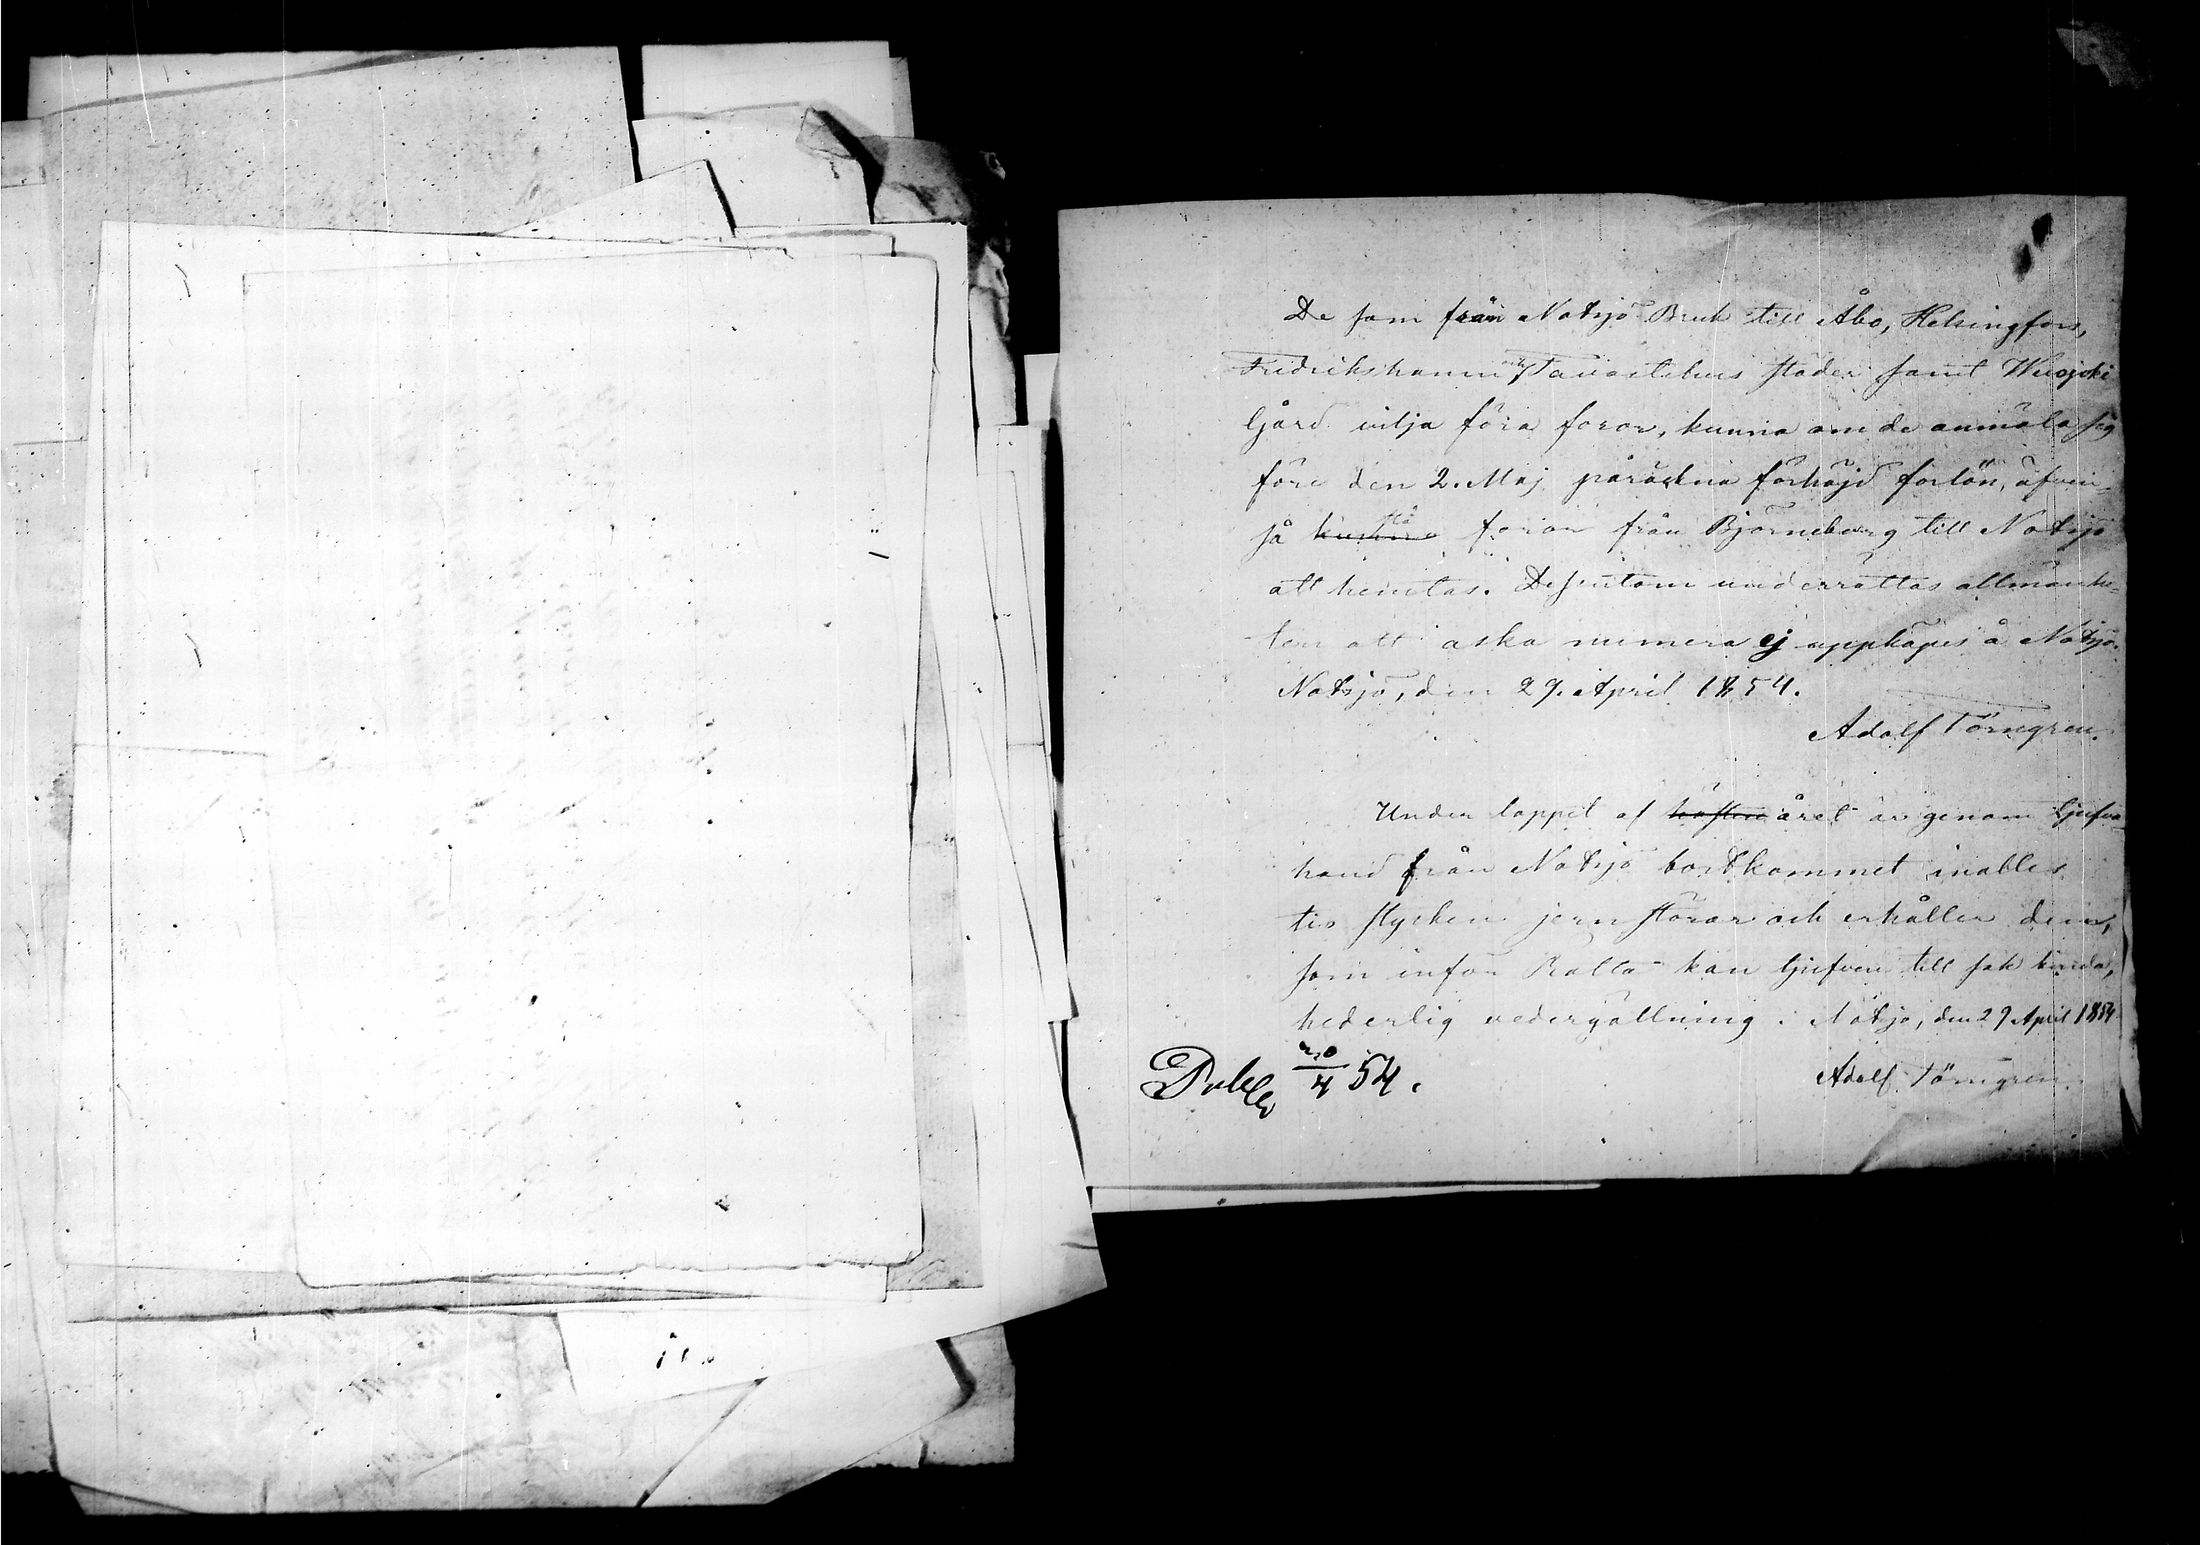 De som från Notsjö Bruk till Åbo, Helsingfors,
Fredrikshamn och Tavastehus städer samt Wuojoki
Gård vilja föra foror, kunna om de anmäla sig
före den 2. Maj påräkna förhöjd forlön, äfven-
så kunna stå foror från Björneborg till Notsjö
att hemtas. Dessutom underrättas allmänhe-
ten att aska numera ej uppköpes å Notsjö.
Notsjö, den 29. April 1854.
Adolf Törngren.
Under loppet af hösten året är genom tjufva-
hand från Notsjö bortkommet inalles
tio stycken jern störar och erhåller den,
som inför Rätta kan tjufven till sak binda,
hederlig vedergällning. Notsjö, den 29 April 1854
Adolf Törngren.
30/4 54.